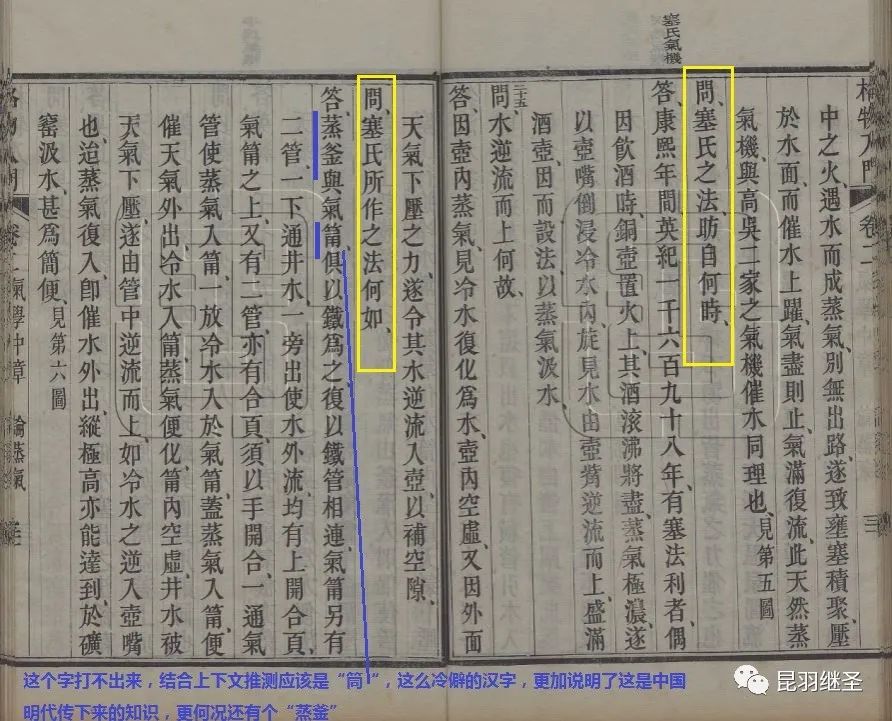 塞氏氣機
格物入門 卷二
中之火、遇水而成蒸氣、別無出路、遂致壅塞積聚、壓
於水面、而催水上躍、氣盡則止、氣滿復流、此天然蒸
氣機、與高吳二家之氣機催水同理也、見第五圖
問、塞氏之法、昉自何時、
答、康熙年間、英紀一千六百九十八年、有塞法利者、偶
因飲酒時、銅壺置火上、其酒滾沸將盡、蒸氣極濃、遂
以壺嘴倒浸冷水內、旋見水由壺嘴逆流而上、盛滿
酒壺、因而設法以蒸氣汲水、
二十五
問、水逆流而上何故、
答、因壺內蒸氣、見冷水復化爲水、壺內空虛、又因外面
天氣下壓之力、遂令其水逆流入壺、以補空隙、
問、塞氏所作之法何如、
答、蒸釜與氣筩、俱以鐵爲之、復以鐵管相連、氣筩另有
二管、一下通井水、一旁出使水外流、均有上開合頁、
氣筩之上、又有二管、亦有合頁、須以手開合、一通氣
管、使蒸氣入筩、一放冷水入於氣筩、蓋蒸氣入筩、便
催天氣外出、冷水入筩、蒸氣便化、筩內空虛、井水被
天氣下壓、遂由管中逆流而上、如冷水之逆入壺嘴
也、迨蒸氣復入、卽催水外出、縱極高亦能達到、於礦
窰汲水、甚爲簡便、見第六圖
格物入門 卷二 氣學中章 論蒸氣
这个字打不出来，结合上下文推测应该是“筒”，这么冷僻的汉字，更加说明了这是中国
明代传下来的知识，更何况还有个“蒸釜”
昆羽继圣